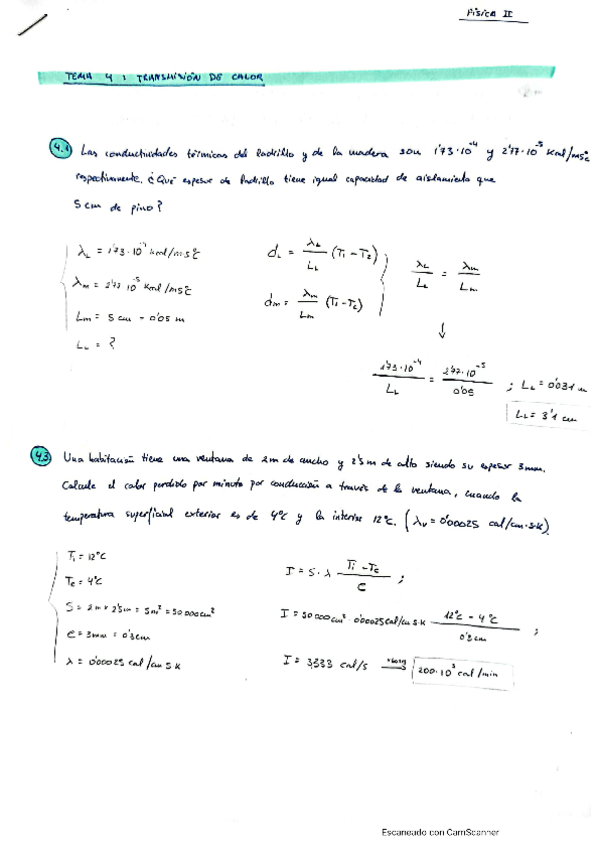 Física II
TEMA 4: TRANSMISIÓN DE CALOR
4.1 Las conductividades térmicas del ladrillo y de la madera son 1'73·10⁻⁴ y 2'77·10⁻⁵ Kcal/msºc
respectivamente. ¿Qué espesor de ladrillo tiene igual capacidad de aislamiento que
5 cm de pino?
λL = 1'73·10⁻⁴ kcal/msºC
λm = 2'77·10⁻⁵ Kcal/msºC
Lm = 5 cm = 0'05 m
LL = ?
dL = λL/LL (T1 - T2)
dm = λm/Lm (T1 - T2)
λL/LL = λm/Lm
↓
1'73·10⁻⁴/LL = 2'77·10⁻⁵/0'05 ; LL = 0'031 m
LL = 3'1 cm
4.3 Una habitación tiene una ventana de 2m de ancho y 2'5m de alto siendo su espesor 3mm.
Calcule el calor perdido por minuto por conducción a través de la ventana, cuando la
temperatura superficial exterior es de 4ºC y la interior 12ºC. (λv = 0'00025 cal/cm·s·K).
Ti = 12ºC
Te = 4ºC
S = 2m x 2'5m = 5m² = 50000cm²
e = 3mm = 0'3cm
λ = 0'00025 cal/cm s K
I = S·λ (Ti - Te)/e ;
I = 50000cm² · 0'00025cal/cm s·K (12ºC - 4ºC)/0'3cm ;
I = 3333 cal/s → 200·10³ cal/min
Escaneado con CamScanner